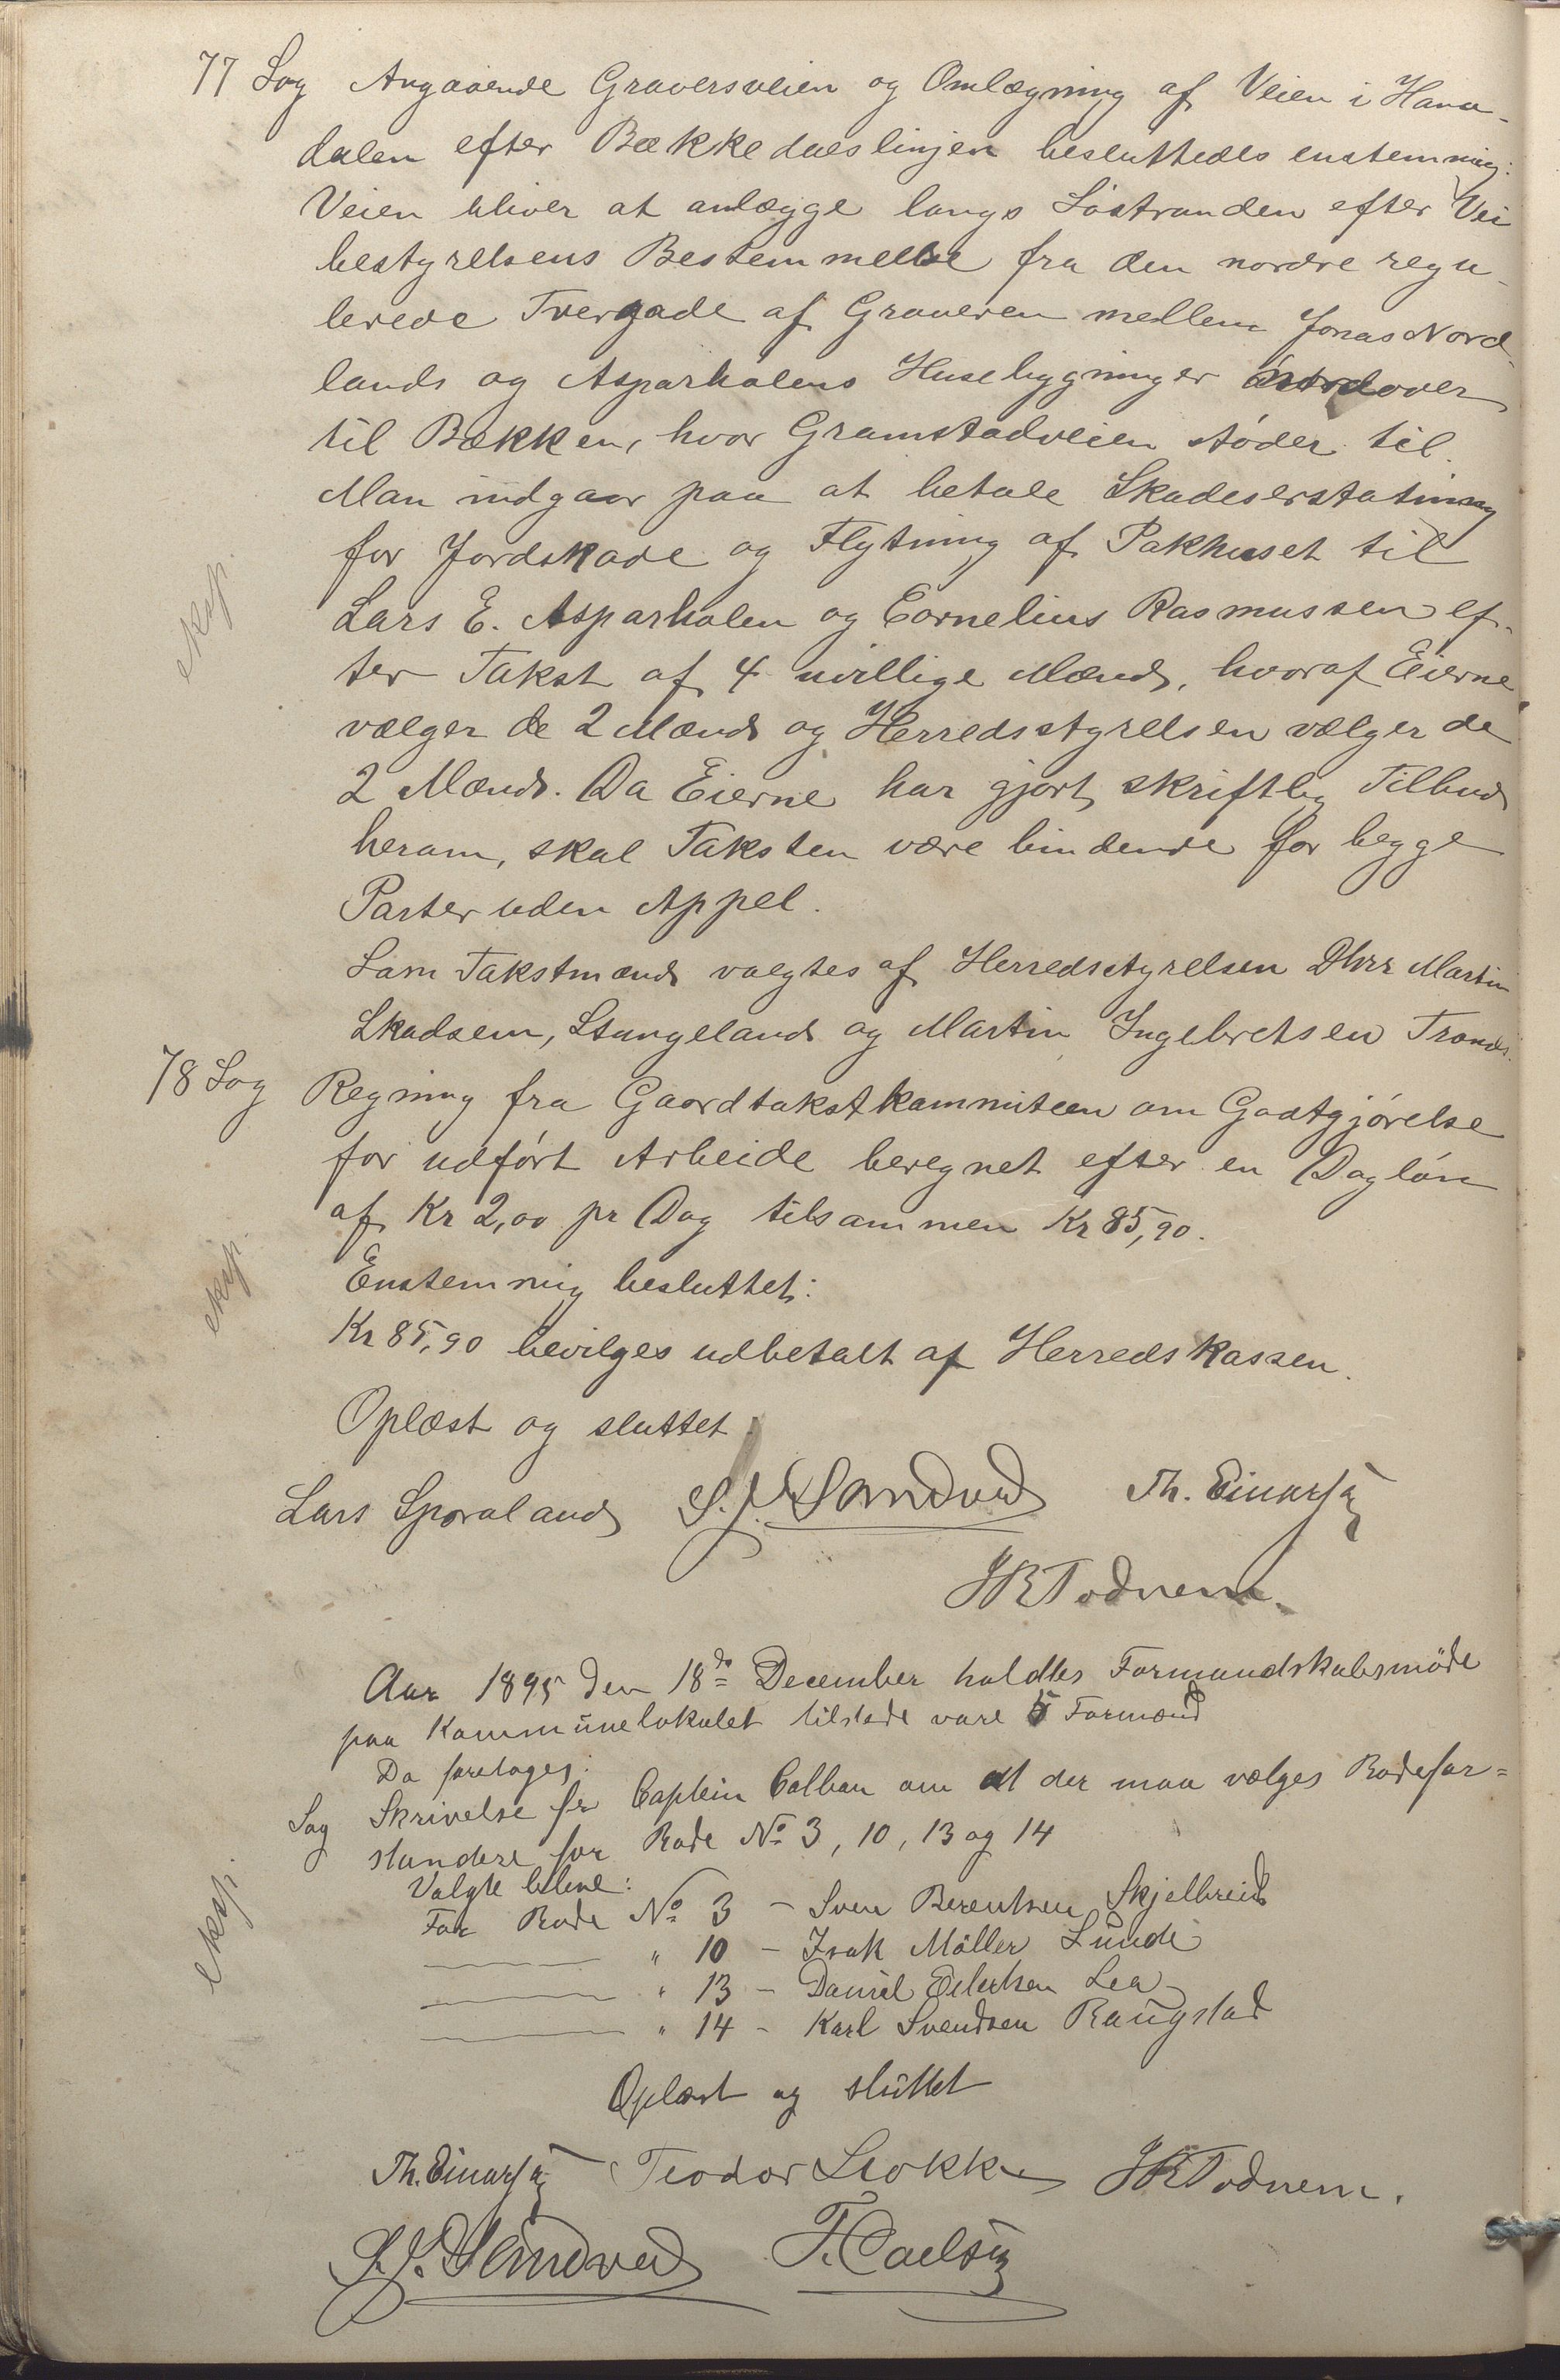 77 Sag Angaaende Graversveien og Omlægning af Veien i Hana-
dalen efter Bækkedalslinjen besluttedes enstemmig:
Veien bliver at anlægge langs Søstranden efter Vei
bestyrelsens Bestemmelse fra den nordre regu-
lerede Tvergade af Graveren mellem Jonas Nord-
lands og Asparholens Husebygninger nordover
til Bækken, hvor Gramstadveien støder til.
Man indgaar paa at betale Skadeserstatning
for Jordskade og Flytning af Pakhuset til
eksp.
Lars E. Asparholen og Cornelius Rasmussen ef-
ter Takst af 4 uvillige Mænd, hvoraf Eierne
vælger de 2 Mænd og Herredsstyrelsen vælger de
2 Mænd. Da Eierne har gjort skriftlig Tilbud
herom, skal Taksten være bindende for begge
Parter uden Appel.
Som Takstmænd valgtes af Herredsstyrelsen Dhrr Martin
Skadsem, Stangeland og Martin Ingebretsen Tronds.
78 Sag Regning fra Gaardtakstkommiteen om Godtgjørelse
for udført Arbeide beregnet efter en Dagløn
af Kr 2,00 pr Dag tilsammen Kr 85,90.
eksp.
Enstemmig besluttet:
Kr 85,90 bevilges udbetalt af Herredskassen.
Oplæst og sluttet.
Lars Sporaland S. J. Sandved Th. Einarsen
JRTodnem.
Aar 1895 den 18de December holdtes Formandskabsmøde
paa Kommunelokalet tilstede vare 5 Formænd
Da foretoges:
Sag Skrivelse fr Captein Calban om at der maa vælges Rodefor=
standere for Rode No 3, 10, 13 og 14
eksp.
Valgte bleve:
For Rode No 3 - Sven Berentsen Skjelbreid
" 10 - Isak Møller Lunde
" 13 - Daniel Eilertsen Lea
" 14 - Karl Svendsen Raugstad
Oplæst og sluttet
Th. Einarsen Teodor Stokke JRTodnem.
S. J. Sandved